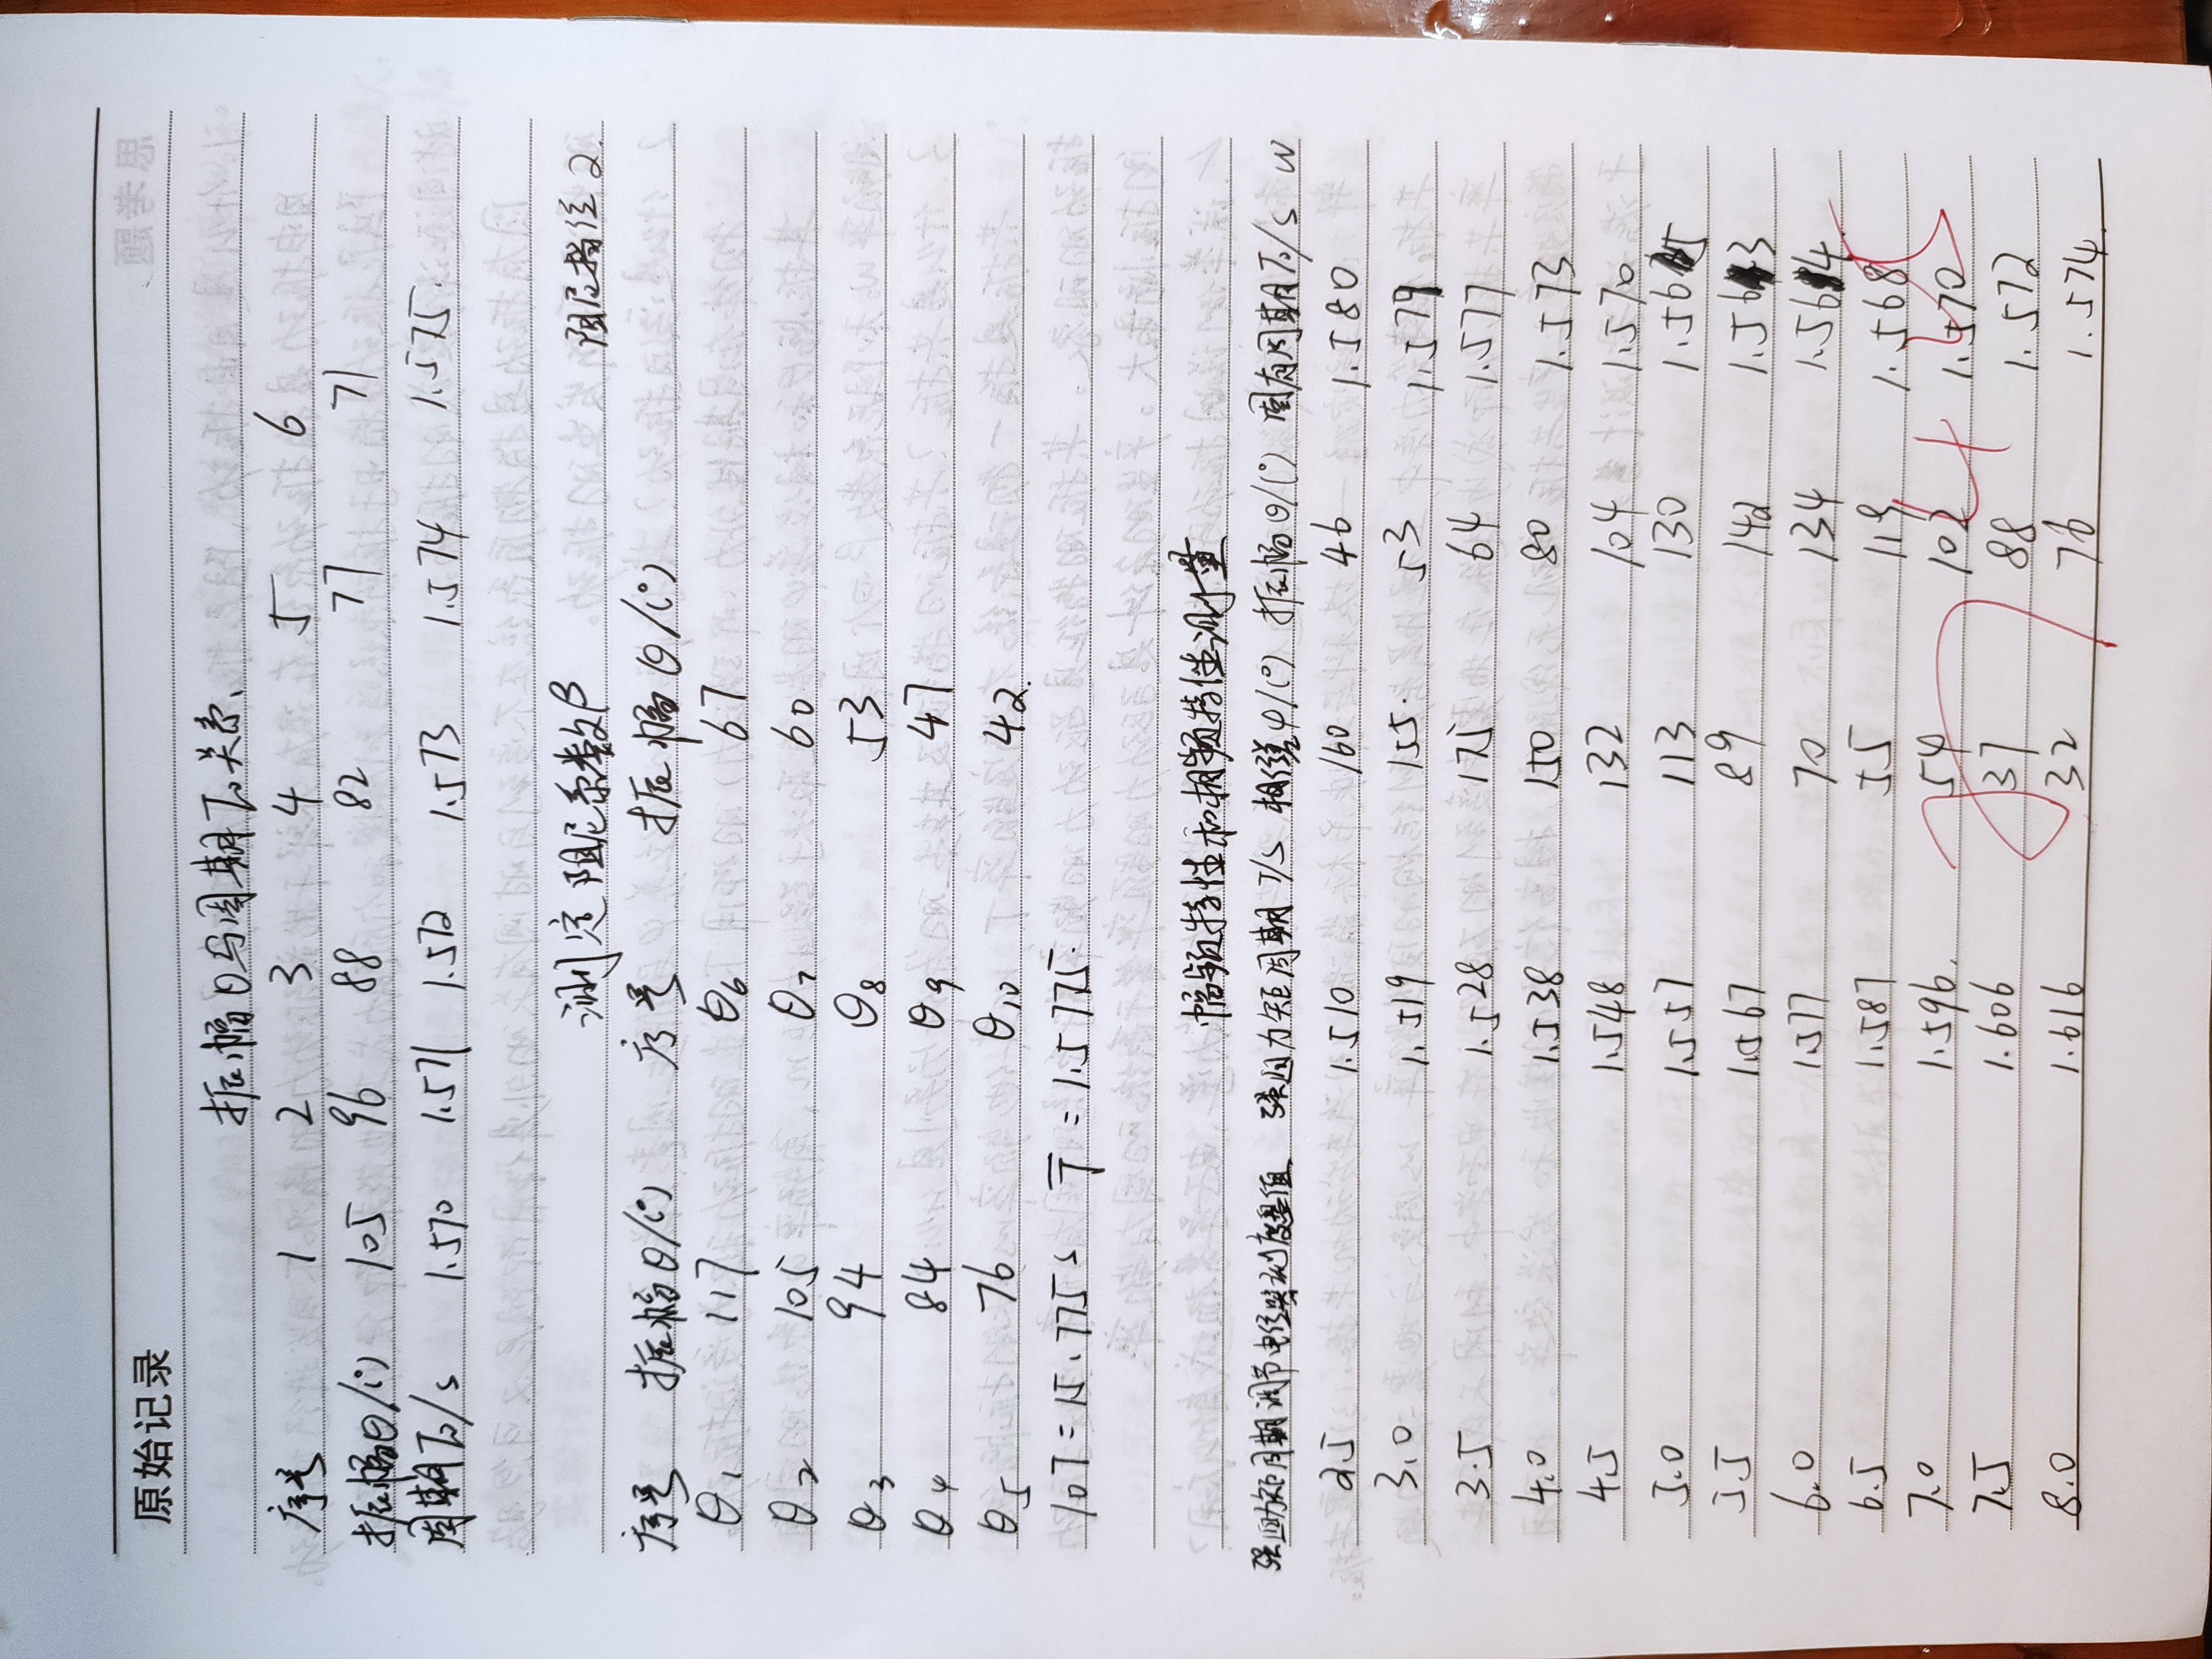 原始记录
振幅θ与周期T₀关系.
序号 1 2 3 4 5 6
振幅θ/(°) 105 96 88 82 77 71
周期T₀/s 1.570 1.571 1.572 1.573 1.574 1.575.
测定阻尼系数β 阻尼挡位2.
序号 振幅θ/(°) 序号 振幅θ/(°)
θ₁ 117 θ₆ 67
θ₂ 105 θ₇ 60
θ₃ 94 θ₈ 53
θ₄ 84 θ₉ 47
θ₅ 76 θ₁₀ 42.
10T=15.775s T̅=1.5775.
幅频特性和相频特性测量
强迫力矩周期调节电位器刻度盘值 强迫力矩周期T/s 相位差φ/(°) 振幅θ/(°) 固有周期T₀/s W
2.5 1.510 160 46 1.580
3.0 1.519 155. 53 1.579
3.5 1.528 175 64 1.577
4.0 1.538 150 80 1.573
4.5 1.548 132 104 1.570
5.0 1.557 113 130 1.565
5.5 1.567 89 142 1.563
6.0 1.577 70 134 1.564
6.5 1.587 55 119 1.568
7.0 1.596. 54 102 1.570
7.5 1.606 37 88 1.572
8.0 1.616 32 76 1.574.